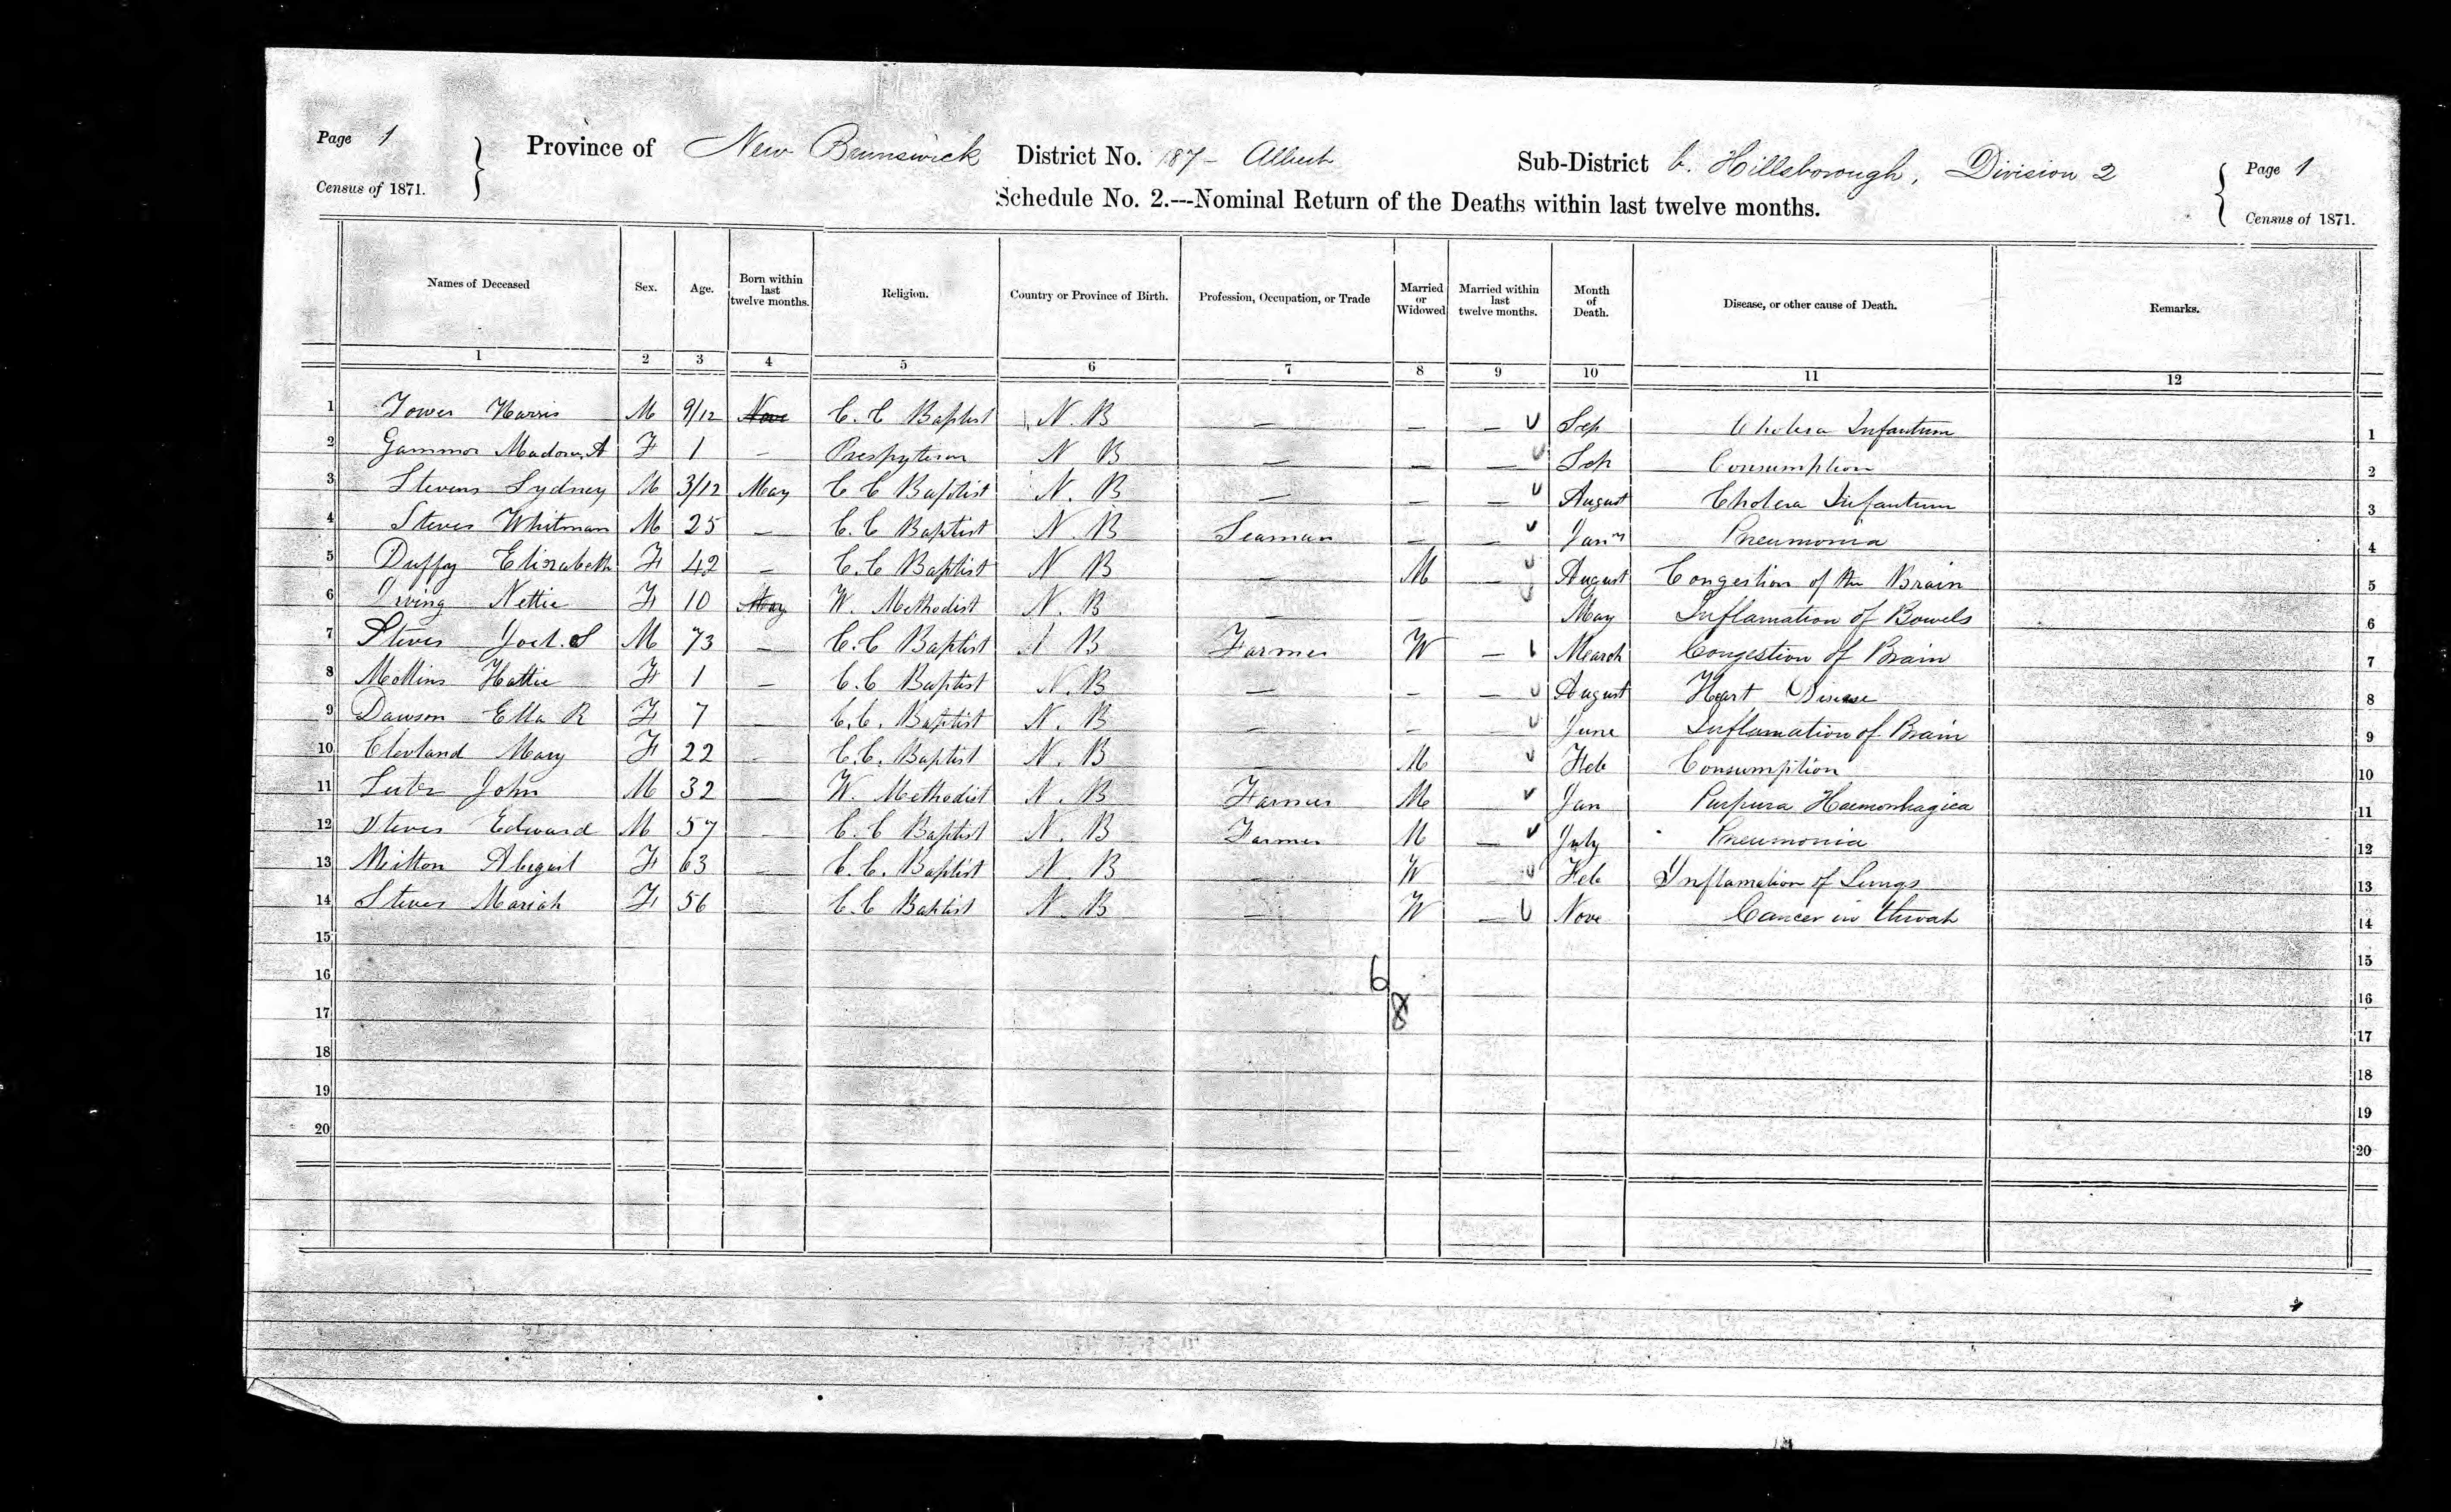 Page 1
Census of 1871.
Province of New Brunswick District No. 187 - Albert Sub-District b. Hillsborough, Division 2
Page 1
Census of 1871.
Schedule No. 2.---Nominal Return of the Deaths within last twelve months.
Names of Deceased Sex. Age. Born within last twelve months. Religion. Country or Province of Birth. Profession, Occupation, or Trade Married or Widowed Married within last twelve months. Month of Death. Disease, or other cause of Death. Remarks.
1 2 3 4 5 6 7 8 9 10 11 12
1 Tower Harris M 9/12 Nove C. C Baptist N. B — — — Sep Cholera Infantum 1
2 Gammon A F 1 - Presbyterian N B — — — Sep Consumption 2
3 Stevens Sydney M 3/12 May C C Baptist N. B — — — August Cholera Infantum 3
4 Steves Whitman M 25 — C. C Baptist N. B Seaman — — Jany Pneumonia 4
5 Duffy Elizabeth F 42 — C. C Baptist N B — M — August Congestion of the Brain 5
6 Irving Nettie F 10 May W. Methodist N. B — — May Inflamation of Bowels 6
7 Steves Joel. S M 73 — C. C Baptist N B Farmer W — March Congestion of Brain 7
8 Hattie F 1 — C. C Baptist N. B — - — August Heart Disease 8
9 Dawson Ella R F 7 — C. C. Baptist N. B — - — June Inflamation of Brain 9
10 Clevland Mary F 22 — C. C. Baptist N. B — M Feb Consumption 10
11 Lutz John M 32 — W. Methodist N. B Farmer M Jan Purpura Haemorrhagica 11
12 Steves Edward M 57 — C. C Baptist N. B Farmer M — July Pneumonia 12
13 Milton Abegail F 63 — C. C. Baptist N. B — W — Feb Inflamation of Lungs 13
14 Steves Mariah F 56 — C. C Baptist N. B — W — Nove Cancer in throah 14
15 15
16 6 16
17 8 17
18 18
19 19
20 20